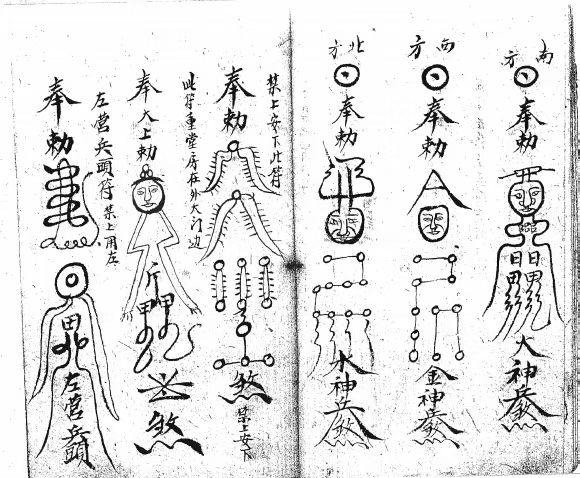 南方
奉勅
火神兵煞
西方
奉勅
金神兵煞
北方
奉勅
水神兵煞
禁上安下此符
奉勅
煞
禁上安下
此符重堂房在外大门边
奉大上勅
煞
左營兵頭符 禁上用左
奉勅
左營兵頭